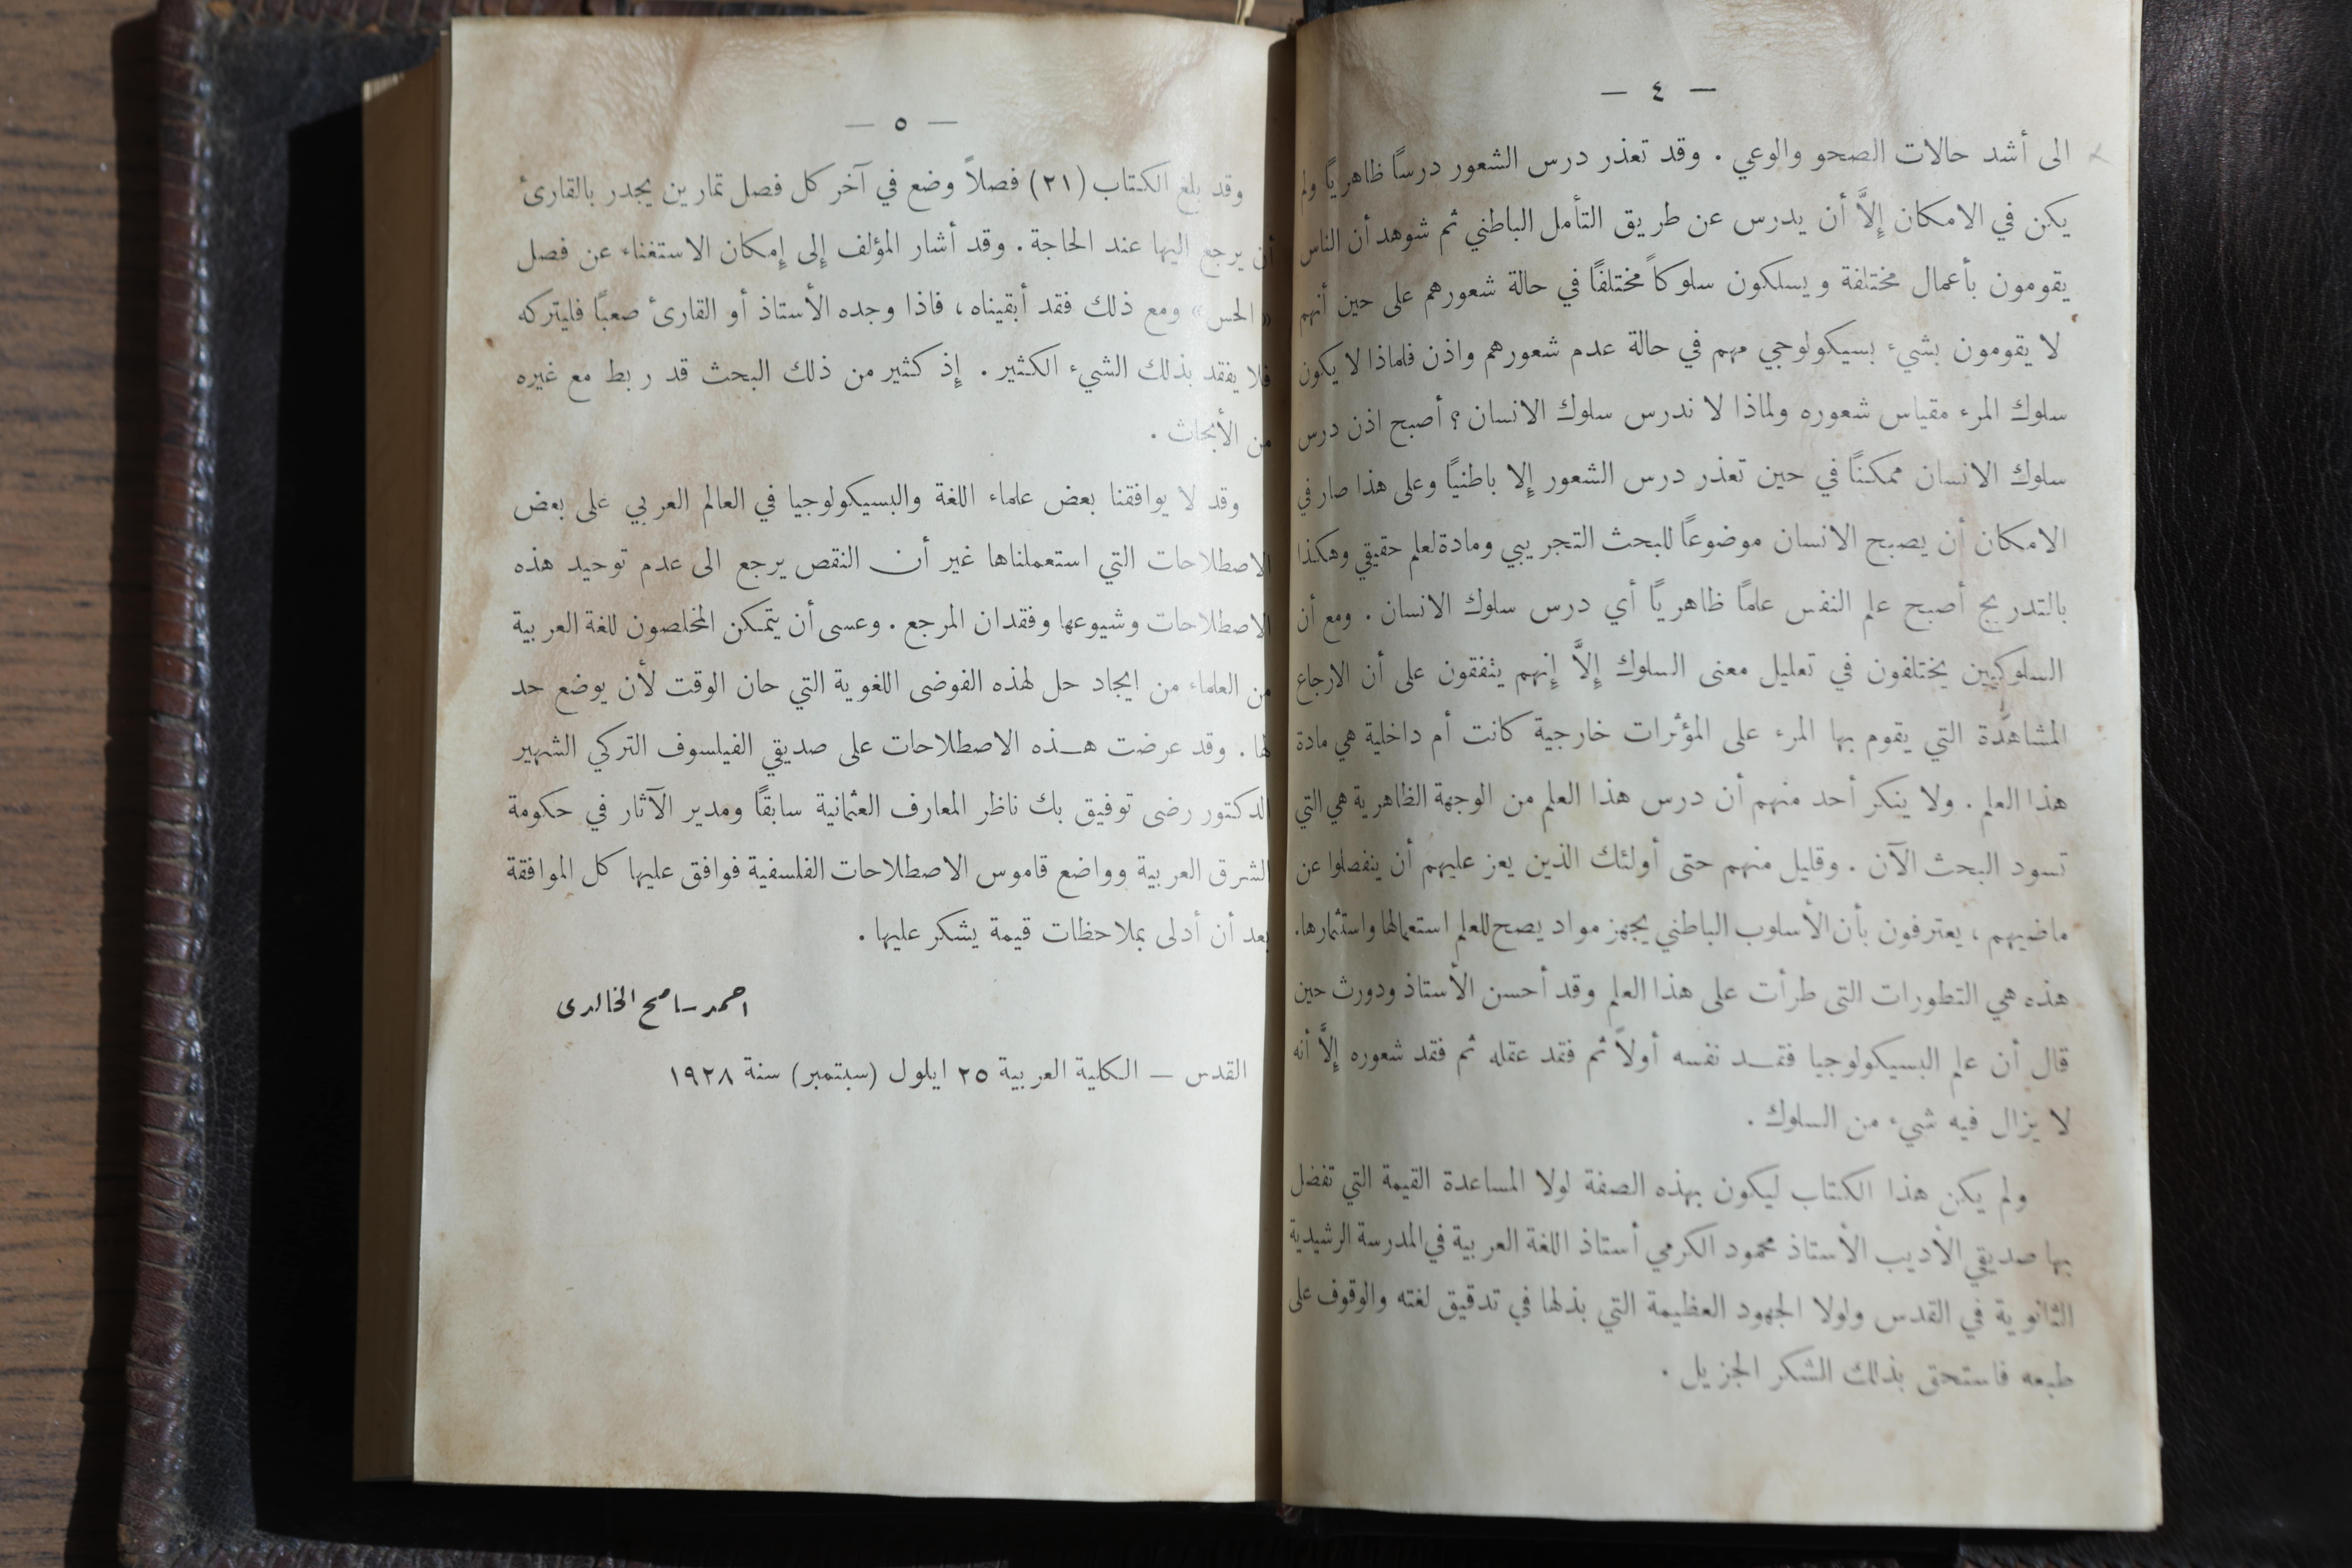 — ٤ —
الى أشد حالات الصحو والوعي . وقد تعذر درس الشعور درساً ظاهرياً ولم
يكن في الامكان إلاَّ أن يدرس عن طريق التأمل الباطني ثم شوهد أن الناس
يقومون بأعمال مختلفة ويسلكون سلوكاً مختلفاً في حالة شعورهم على حين أنهم
لا يقومون بشيء بسيكولوجي مهم في حالة عدم شعورهم واذن فلماذا لا يكون
سلوك المرء مقياس شعوره ولماذا لا ندرس سلوك الانسان ؟ أصبح اذن درس
سلوك الانسان ممكناً في حين تعذر درس الشعور إلا باطنياً وعلى هذا صار في
الامكان أن يصبح الانسان موضوعاً للبحث التجريبي ومادة لعلم حقيقي وهكذا
بالتدريج أصبح علم النفس علماً ظاهرياً أي درس سلوك الانسان . ومع أن
السلوكيين يختلفون في تعليل معنى السلوك إلاَّ إنهم يتفقون على أن الارجاع
المشاهدة التي يقوم بها المرء على المؤثرات خارجية كانت أم داخلية هي مادة
هذا العلم . ولا ينكر أحد منهم أن درس هذا العلم من الوجهة الظاهرية هي التي
تسود البحث الآن . وقليل منهم حتى أولئك الذين يعز عليهم أن ينفصلوا عن
ماضيهم ، يعترفون بأن الأسلوب الباطني يجهز مواد يصح للعلم استعمالها واستثمارها.
هذه هي التطورات التى طرأت على هذا العلم وقد أحسن الأستاذ ودورث حين
قال أن علم البسيكولوجيا فقد نفسه أولاً ثم فقد عقله ثم فقد شعوره إلاَّ أنه
لا يزال فيه شيء من السلوك .
ولم يكن هذا الكتاب ليكون بهذه الصفة لولا المساعدة القيمة التي تفضل
بها صديقي الأديب الأستاذ محمود الكرمي أستاذ اللغة العربية في المدرسة الرشيدية
الثانوية في القدس ولولا الجهود العظيمة التي بذلها في تدقيق لغته والوقوف على
طبعه فاستحق بذلك الشكر الجزيل .
— ٥ —
وقد بلغ الكتاب (٢١) فصلاً وضع في آخر كل فصل تمارين يجدر بالقارئ
أن يرجع اليها عند الحاجة . وقد أشار المؤلف إلى إمكان الاستغناء عن فصل
« الحس » ومع ذلك فقد أبقيناه ، فاذا وجده الأستاذ أو القارئ صعباً فليتركه
فلا يفقد بذلك الشيء الكثير . إذ كثير من ذلك البحث قد ربط مع غيره
من الأبحاث .
وقد لا يوافقنا بعض علماء اللغة والبسيكولوجيا في العالم العربي على بعض
الاصطلاحات التي استعملناها غير أن النقص يرجع الى عدم توحيد هذه
الاصطلاحات وشيوعها وفقدان المرجع . وعسى أن يتمكن المخلصون للغة العربية
من العلماء من ايجاد حل لهذه الفوضى اللغوية التي حان الوقت لأن يوضع حد
لها . وقد عرضت هذه الاصطلاحات على صديقي الفيلسوف التركي الشهير
الدكتور رضى توفيق بك ناظر المعارف العثمانية سابقاً ومدير الآثار في حكومة
الشرق العربية وواضع قاموس الاصطلاحات الفلسفية فوافق عليها كل الموافقة
بعد أن أدلى بملاحظات قيمة يشكر عليها .
احمد سامح الخالدى
القدس — الكلية العربية ٢٥ ايلول (سبتمبر) سنة ١٩٢٨